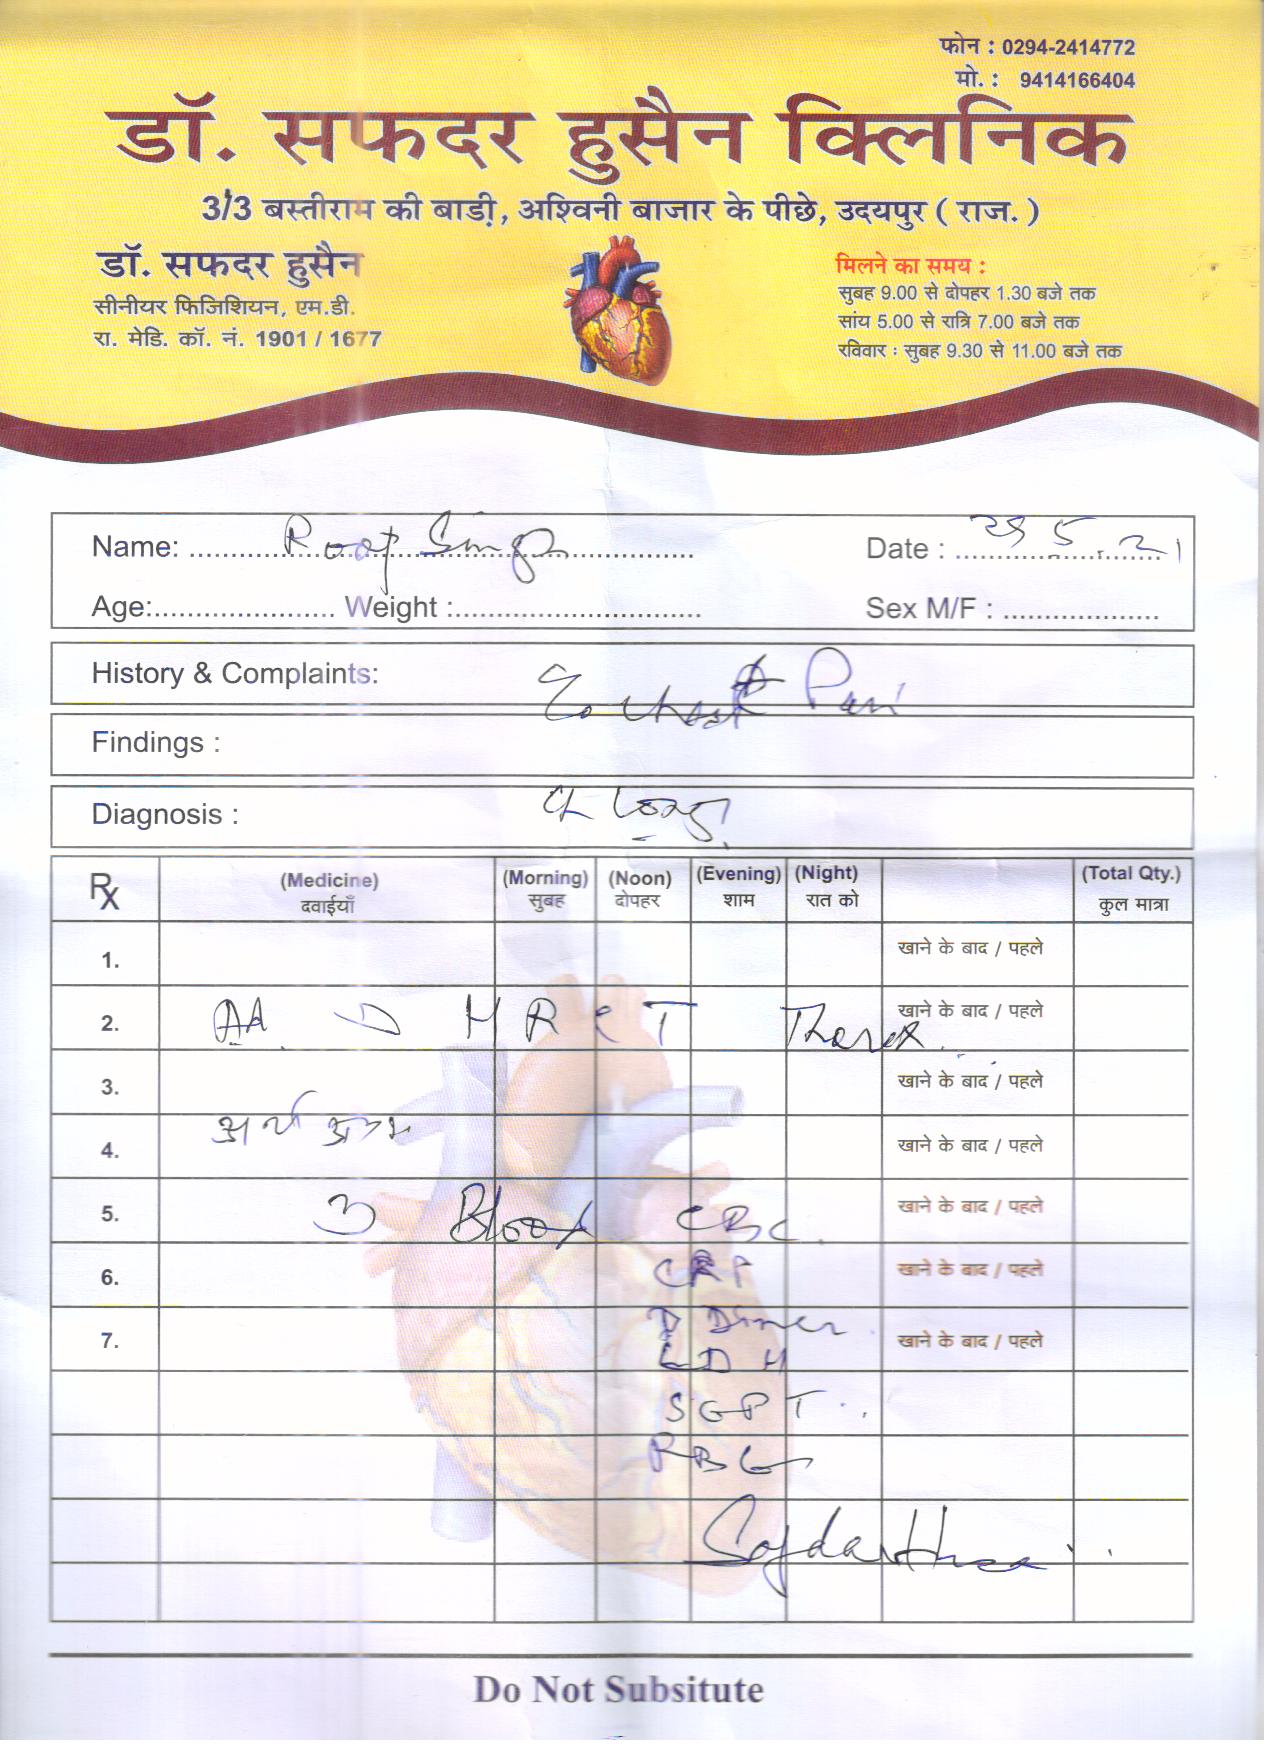 फोन : 0294-2414772
मो. : 9414166404
डॉ. सफदर हुसैन क्लिनिक
3/3 बस्तीराम की बाड़ी, अश्विनी बाजार के पीछे, उदयपुर ( राज. )
डॉ. सफदर हुसैन
सीनीयर फिजिशियन, एम.डी.
रा. मेडि. कॉ. नं. 1901 / 1677
मिलने का समय :
सुबह 9.00 से दोपहर 1.30 बजे तक
सांय 5.00 से रात्रि 7.00 बजे तक
रविवार : सुबह 9.30 से 11.00 बजे तक
Name: Roop Singh Date : 5.21
Age: Weight : Sex M/F :
History & Complaints: chest Pain
Findings :
Diagnosis :
Rx (Medicine) (Morning) (Noon) (Evening) (Night) (Total Qty.)
दवाईयाँ सुबह दोपहर शाम रात को कुल मात्रा
1. खाने के बाद / पहले
2. HRCT Thorax खाने के बाद / पहले
3. खाने के बाद / पहले
4. खाने के बाद / पहले
5. Blood CBC खाने के बाद / पहले
6. CRP खाने के बाद / पहले
D Dimer
7. LDH खाने के बाद / पहले
SGPT
RBG
Do Not Subsitute